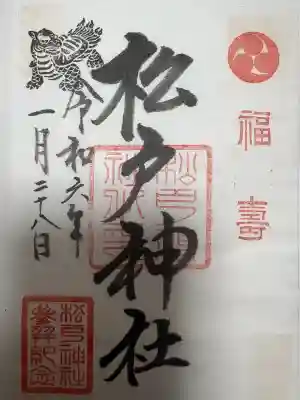 福壽
松戸神社
令和六年
一月二十八日
松戸神社
参拝記念